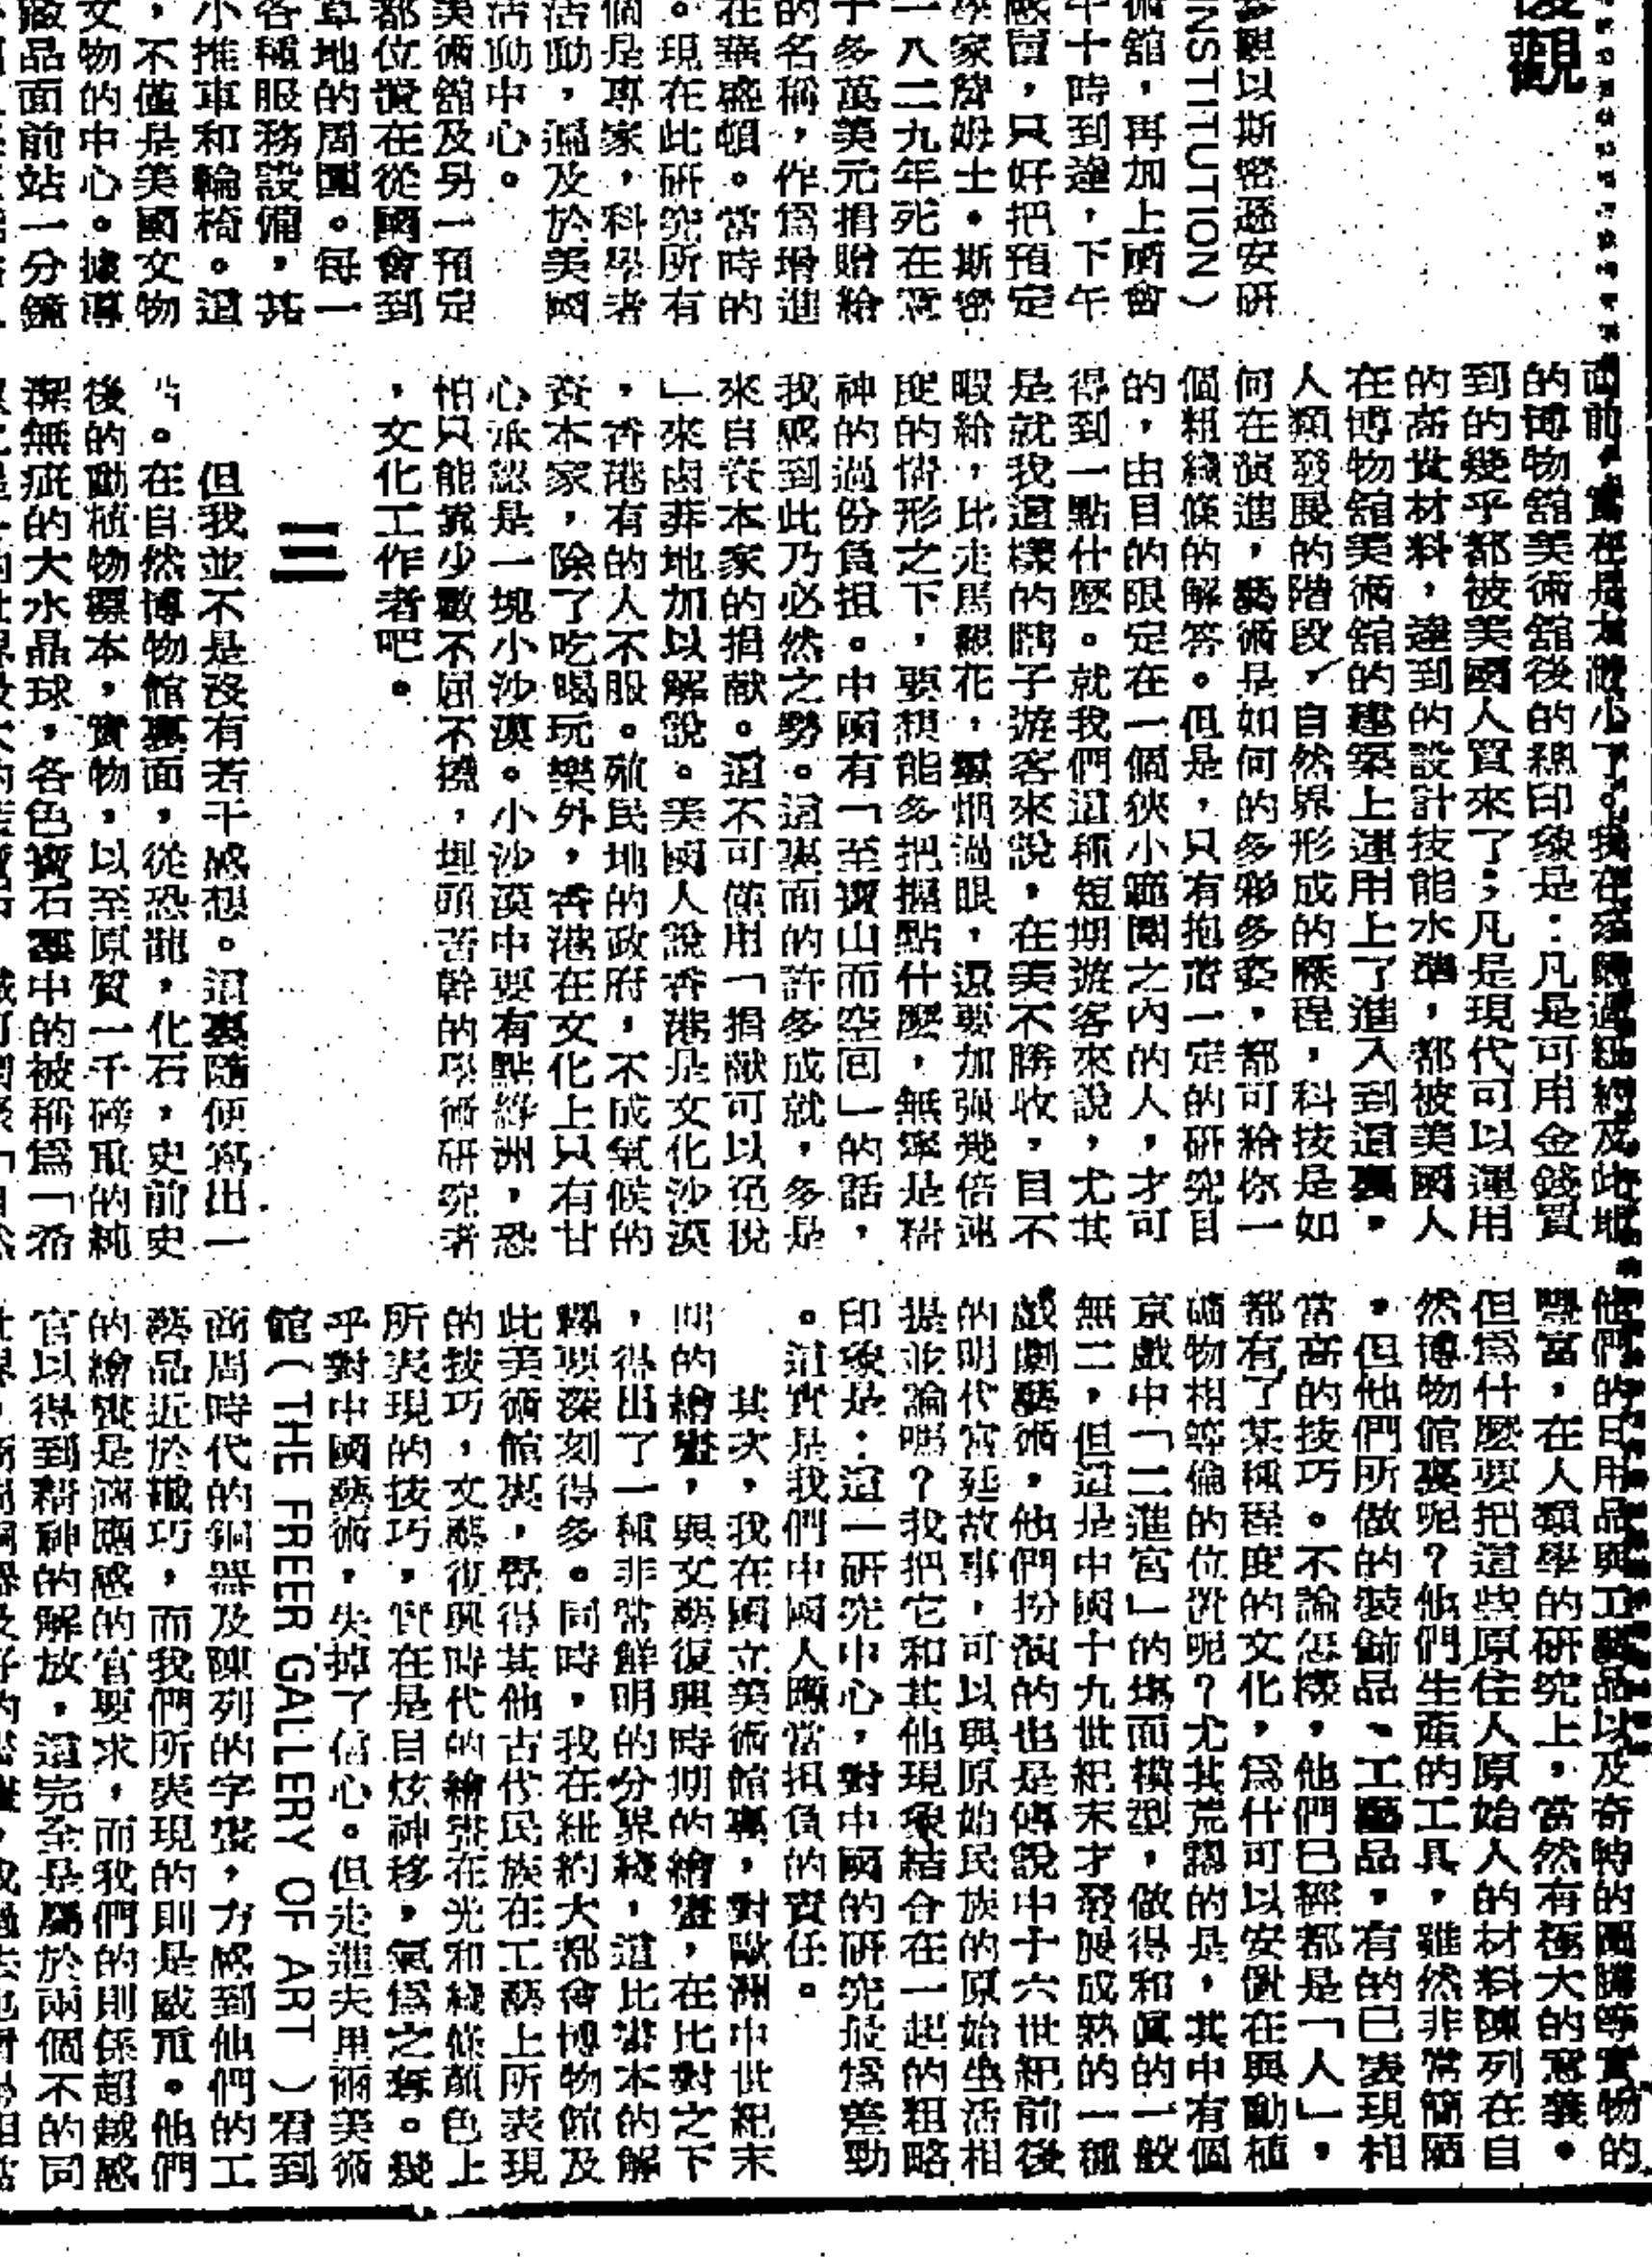 後觀
參觀以斯密遜安研
INSTITUTION）
術館，再加上國會
午十時到達，下午
感冒，只好把預定
學家詹姆士·斯密
一八二九年死在意
十多萬美元捐贈給
的名稱，作為增進
在華盛頓。當時的
。現在此研究所有
個是專家，科學者
活動，遍及於美國
活動中心。
美術館及另一預定
都位置在從國會到
草地的周圍。每一
各種服務設備，甚
小推車和輪椅。這
，不僅是美國文物
文物的中心。據專
藏品面前站一分鐘
面前，實在是太渺小了。我在
的博物館美術館後的總印象是：凡是可用金錢買
到的幾乎都被美國人買來了；凡是現代可以運用
的高貴材料，達到的設計技能水準，都被美國人
在博物館美術館的建築上運用上了進入到這裏，
人類發展的階段，自然界形成的歷程，科技是如
何在演進，藝術是如何的多彩多姿，都可給你一
個粗綫條的解答。但是，只有抱着一定的研究目
的，由目的限定在一個狹小範圍之內的人，才可
得到一點什麼。就我們這種短期遊客來說，尤其
是就我這樣的瞎子游客來說，在美不勝收，目不
暇給，比走馬觀花，雲烟過眼，還要加强幾倍速
度的情形之下，要想能多把握點什麼，無寧是精
神的過份負担。中國有「至寶山而空回」的話，
我感到此乃必然之勢。這裏面的許多成就，多是
來自資本家的捐献。這不可僅用「捐献可以免稅
」來鹵莽地加以解說。美國人說香港是文化沙漠
，香港有的人不服。殖民地的政府，不成氣候的
資本家，除了吃喝玩樂外，香港在文化上只有甘
心承認是一塊小沙漠。小沙漠中要有點綠洲，恐
怕只能靠少數不屈不撓，埋頭苦幹的學術研究者
，文化工作者吧。
三
但我並不是沒有若干感想。這裏隨便寫出一
些。在自然博物館裏面，從恐龍，化石，史前史
後的動植物標本，實物，以至原質一千磅重的純
潔無疵的大水晶球，各色寶石羣中的被稱為「希
他們的日用品與工藝品以及奇特的圖騰等實物的
豐富，在人類學的研究上，當然有極大的意義。
但為什麼要把這些原住人原始人的材料陳列在自
然博物館裏呢？他們生產的工具，雖然非常簡陋
，但他們所做的裝飾品、工藝品，有的已表現相
當高的技巧。不論怎樣，他們已經都是「人」，
都有了某種程度的文化，爲什可以安置在與動植
礦物相等倫的位置呢？尤其荒謬的是，其中有個
京戲中「二進宮」的塲面模型，做得和真的一般
無二，但這是中國十九世紀末才發展成熟的一種
戲劇藝術，他們扮演的也是傳說中十六世紀前後
的明代宮廷故事，可以與原始民族的原始生活相
提並論嗎？我把它和其他現象結合在一起的粗略
印象是：這一研究中心，對中國的研究最爲差勁
。這實是我們中國人應當担負的責任。
其次，我在國立美術館裏，對歐洲中世紀末
期的繪畫，與文藝復興時期的繪畫，在比對之下
，得出了一種非常鮮明的分界綫，這比書本的解
釋要深刻得多。同時，我在紐約大都會博物館及
此美術館裏，覺得其他古代民族在工藝上所表現
的技巧，文藝復興時代的繪畫在光和綫條顏色上
所表現的技巧，實在是目炫神移，氣爲之奪。幾
乎對中國藝術，失掉了信心。但走進夫里爾美術
館（THE FREER GALLERY OF ART）看到
商周時代的銅器及陳列的字畫，方感到他們的工
藝品近於纖巧，而我們所表現的則是威重。他們
的繪畫是滿應感的官要求，而我們的則係超越感
官以得到精神的解放，這完全是屬於兩個不的同